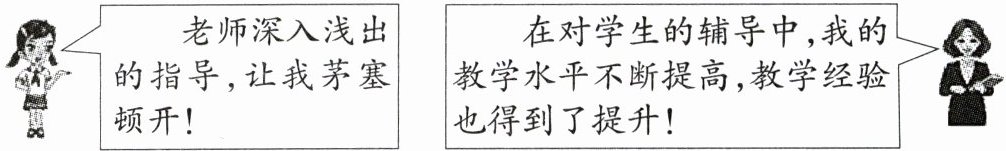 老师深入浅出
的指导,让我茅塞
顿开!
在对学生的辅导中,我的
教学水平不断提高,教学经验
也得到了提升!